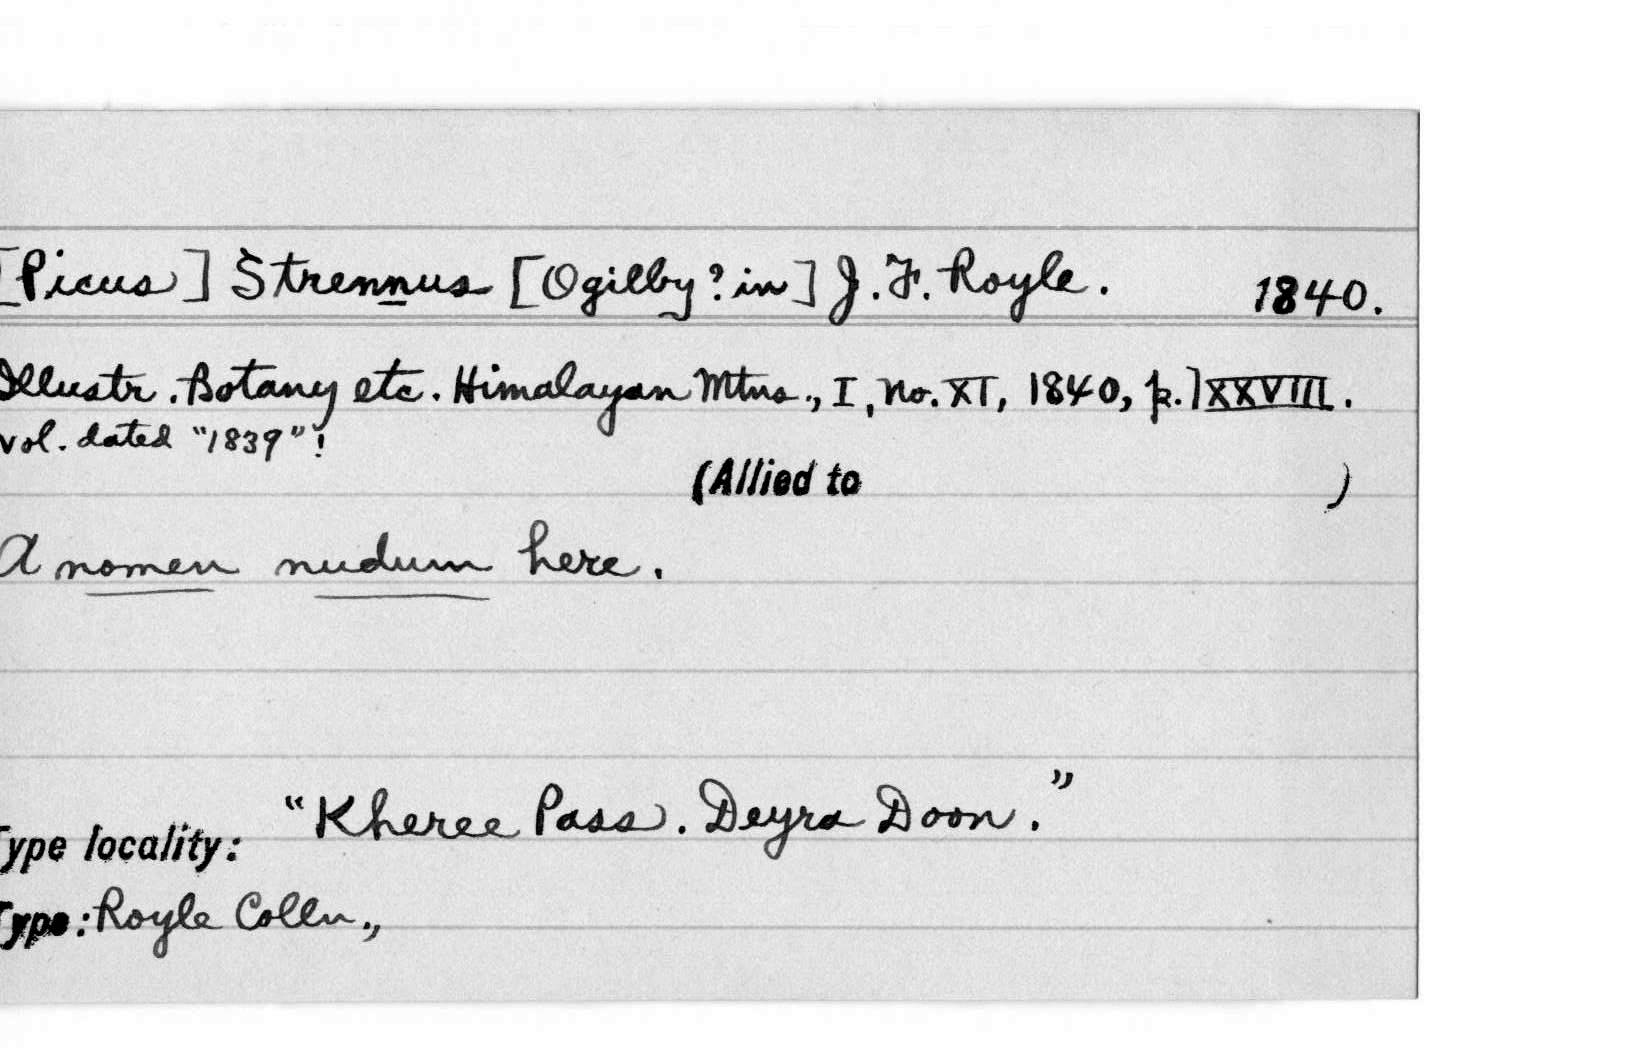 [Picus] Strennus [Ogilby? in] J. F. Royle. 1840.
Illustr. Botany etc. Himalayan Mtns., I, No. XI, 1840, p. lxxviii.
vol. dated "1839"!
(Allied to )
A nomen nudum here.
Type locality: "Kheree Pass. Deyra Doon."
Type: Royle Colln.,